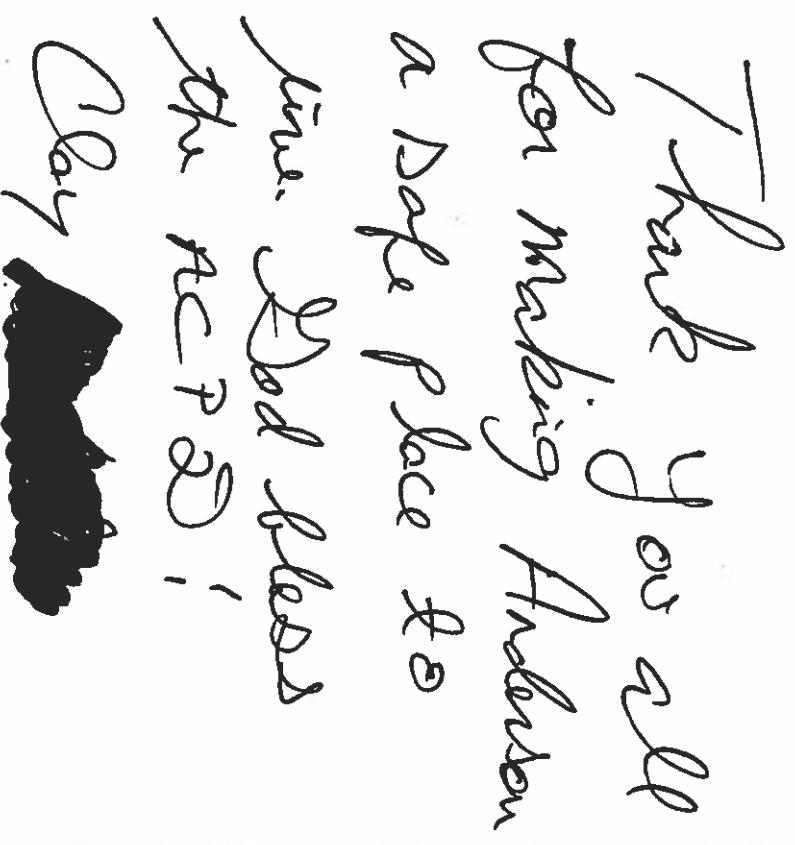 Thank you all
for making Anderson
a safe place to
live. God bless
the ACPD!
Clay